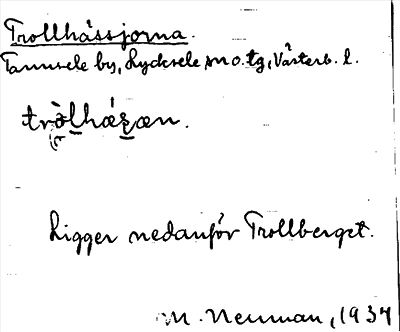 Trollhässjorna.
Tannsele by, Lycksele sn o. tg, Västerb. l.
Ligger nedanför Trollberget.
M. Neuman, 1937